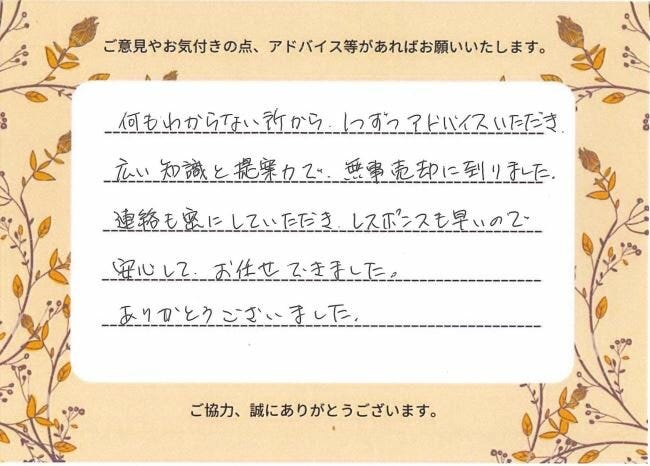 ご意見やお気付きの点、アドバイス等があればお願いいたします。
何もわからない所から、1つずつアドバイスいただき、
広い知識と提案力で、無事売却に到りました。
連絡も密にしていただき、レスポンスも早いので
安心して、お任せできました。
ありがとうございました。
ご協力、誠にありがとうございます。